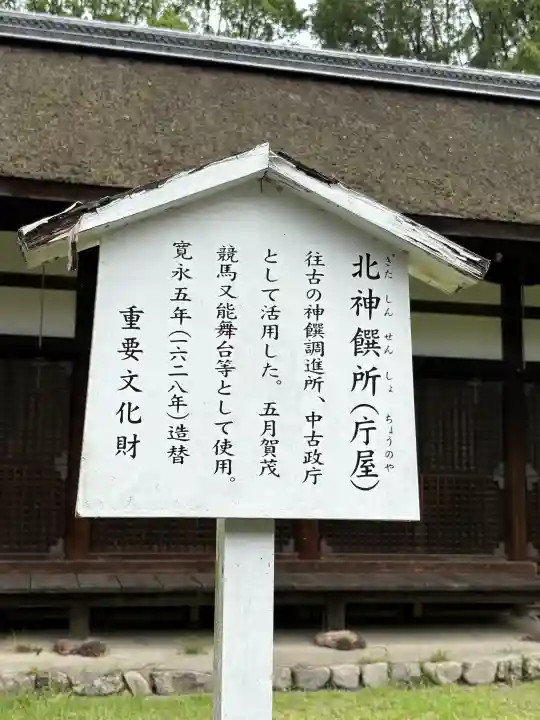 北神饌所(庁屋)
きた しん せん しょ ちょうのや
往古の神饌調進所、中古政庁
として活用した。五月賀茂
競馬又能舞台等として使用。
寛永五年(一六二八年)造替
重要文化財